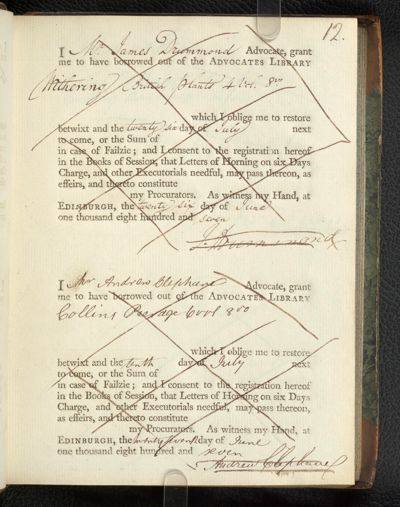 12.
I Mr. James Drummond Advocate, grant
me to have borrowed out of the ADVOCATES LIBRARY
Withering British plants 4 Vol. 8vo
which I oblige me to restore
betwixt and the twenty six day of July next
to come, or the Sum of
in case of Failzie; and I consent to the registration hereof
in the Books of Session, that Letters of Horning on six Days
Charge, and other Executorials needful, may pass thereon, as
effeirs, and thereto constitute
my Procurators. As witness my Hand, at
EDINBURGH, the twenty six day of June
one thousand eight hundred and seven
Drummond
I Mr Andrew Clephane Advocate, grant
me to have borrowed out of the ADVOCATES LIBRARY
Collins Peerage 8vo
which I oblige me to restore
betwixt and the tenth day of July next
to come, or the Sum of
in case of Failzie; and I consent to the registration hereof
in the Books of Session, that Letters of Horning on six Days
Charge, and other Executorials needful, may pass thereon, as
effeirs, and thereto constitute
my Procurators. As witness my Hand, at
EDINBURGH, the day of June
one thousand eight hundred and seven
Andrew Clephane